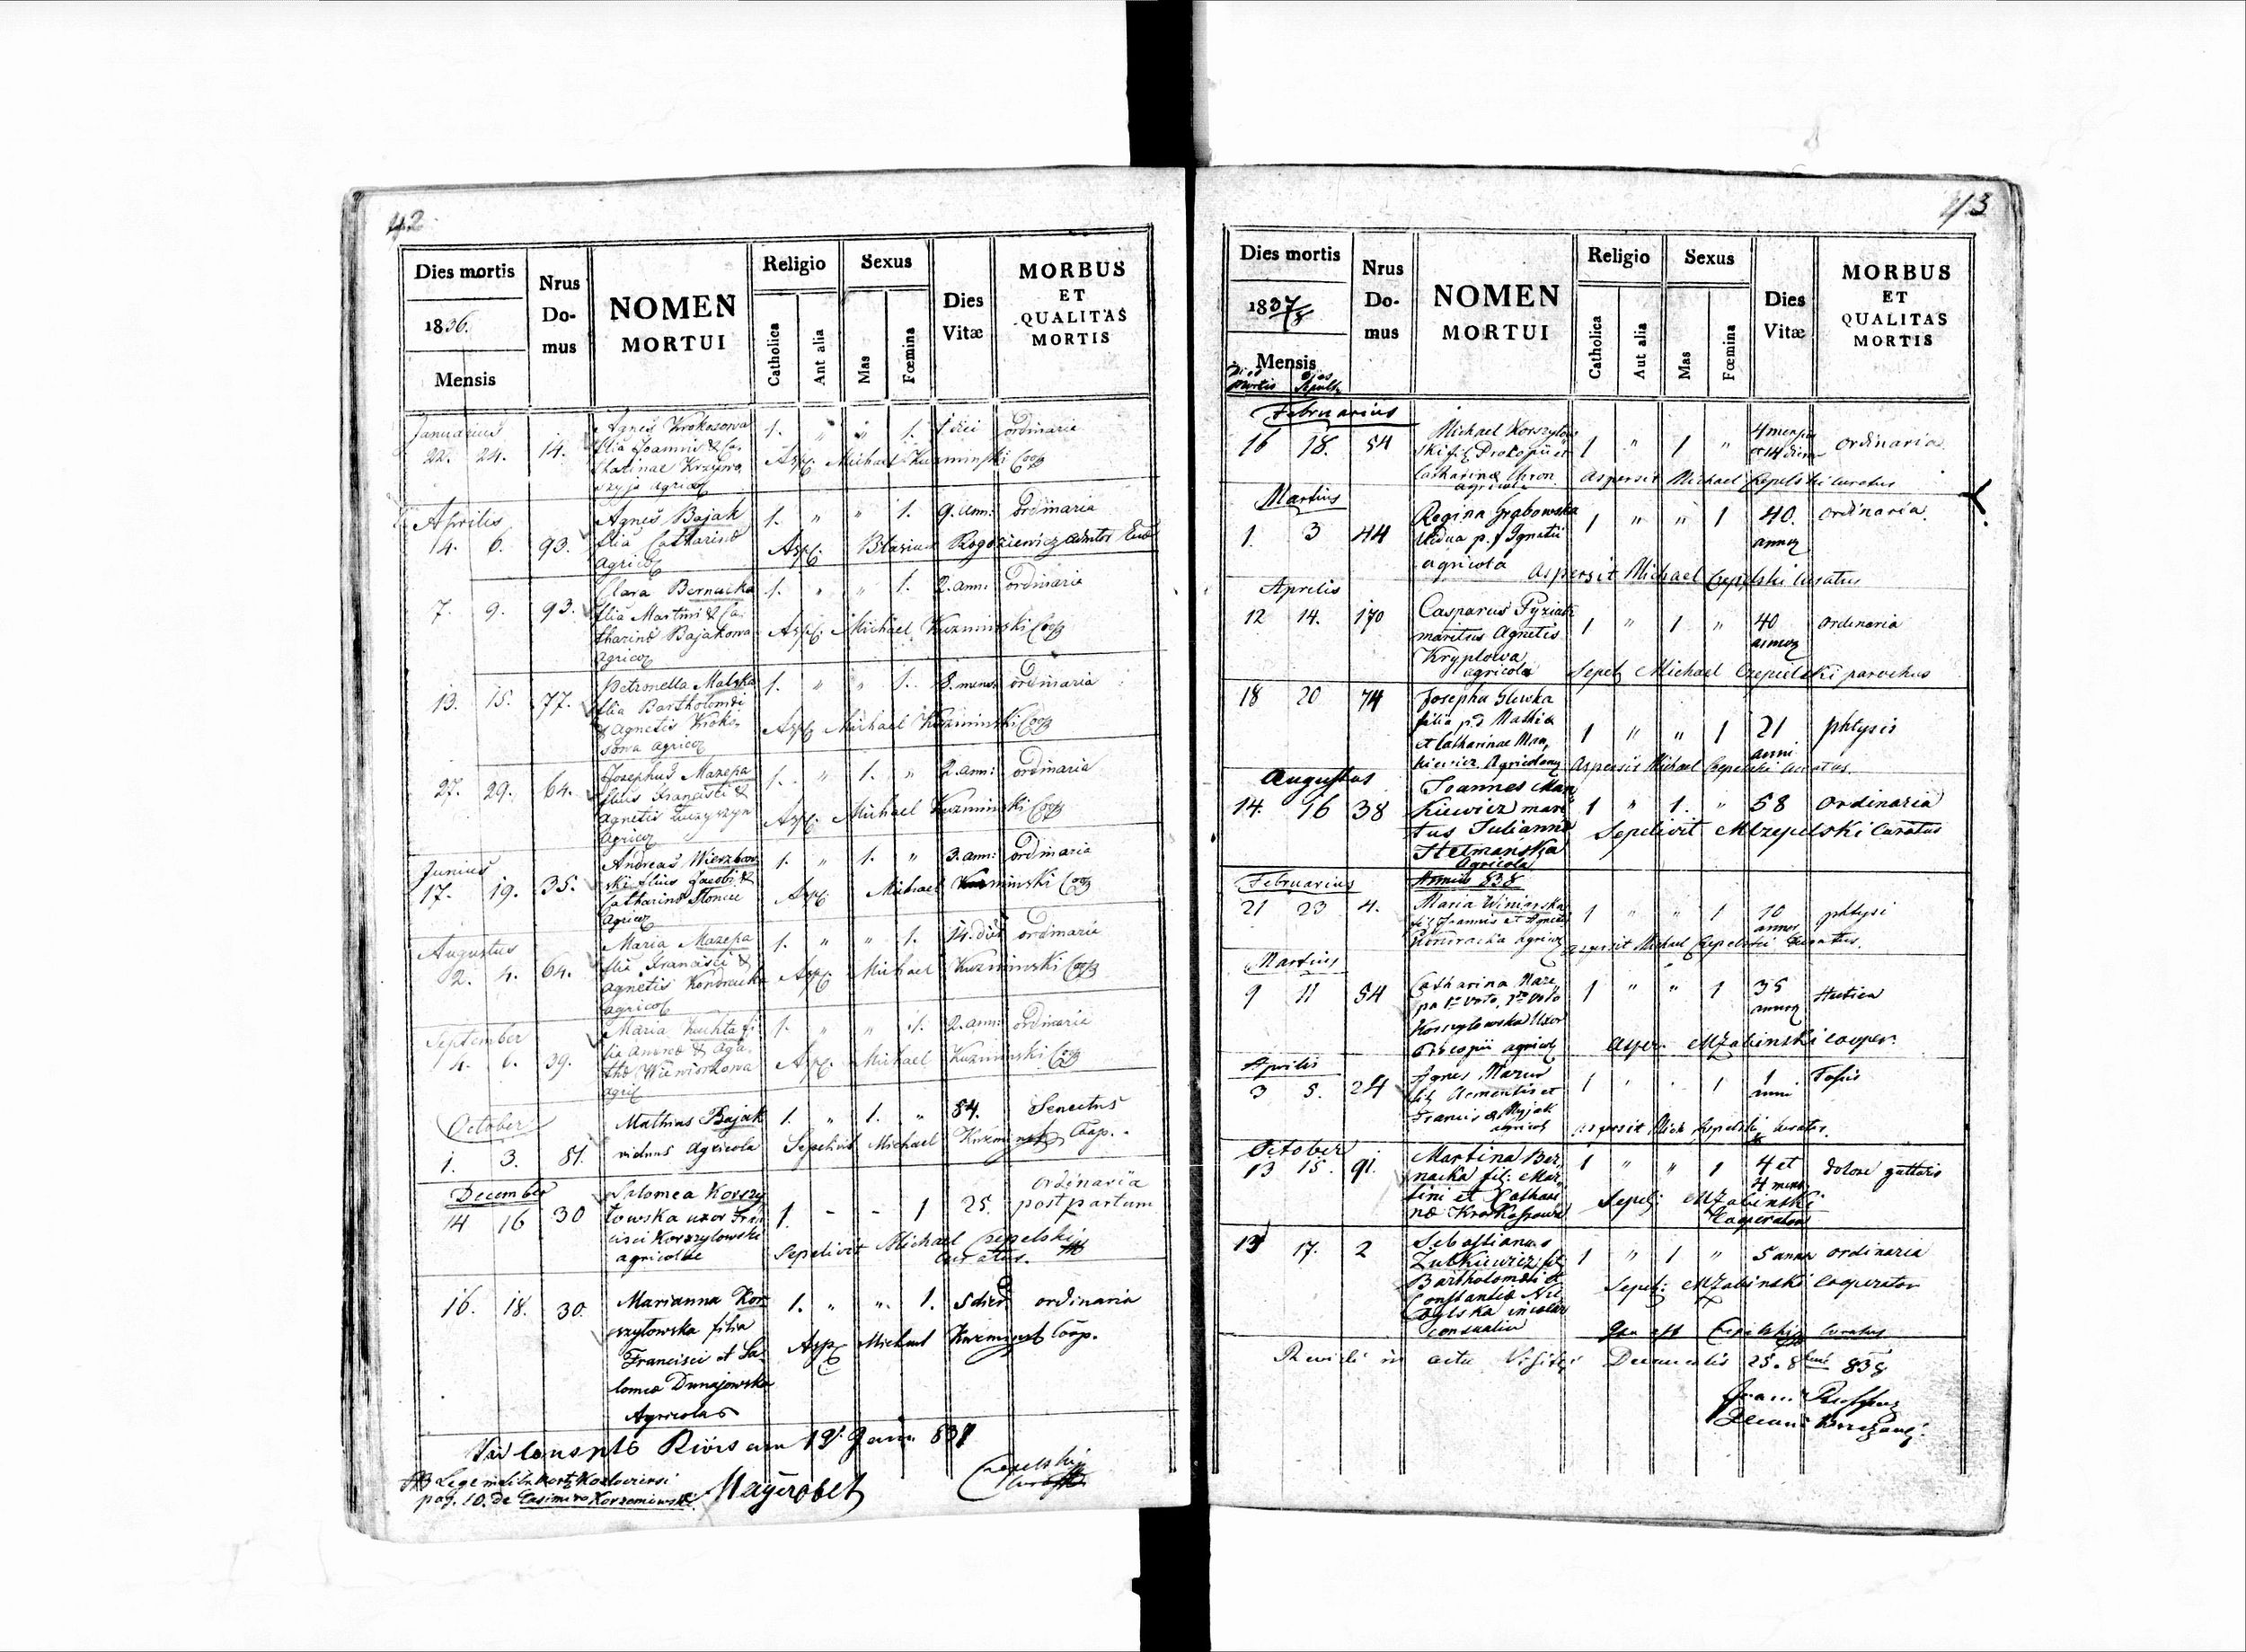 42
Dies mortis
1836.
Mensis
Nrus Do- mus
NOMEN
MORTUI
Religio
Catholica
Ant alia
Sexus
Mas
Fœmina
Dies Vitæ
MORBUS
ET
QUALITAS
MORTIS
Januarius
22. 24. 14. Agnes Krokosowa 1. " " 1. 1 diei ordinaria
filia Joannis & Ca-
tharinae Krzywo
szyja agricol
Asp: Michael Kuzminski Coop
Aprilis
14. 6. 93. Agnes Bajak 1. " " 1. 9. ann: ordinaria
filia Catharinæ
agricol
Asp: Blasius Rogoziewicz
7. 9. 93. Clara Bernacka 1. " " 1. 2. ann: ordinaria
filia Martini & Ca-
tharinæ Bajakowa
agricol
Asp: Michael Kuzminski Coop
13. 15. 77. Petronella Malska 1. " " 1. 8. mens: ordinaria
filia Bartholomæi
& Agnetis Kroko-
sowa agricol
Asp: Michael Kuzminski Coop
27. 29. 64. Josephus Mazepa 1. " 1. " 2. ann: ordinaria
filius Francisci &
Agnetis
agricol
Asp: Michael Kuzminski Coop
Junius
17. 19. 35. Andreas Wierzbow 1. " 1. " 3. ann: ordinaria
ski filius Jacobi &
Catharinæ Stoncu
agricol
Asp: Michael Kuzminski Coop
Augustus
2. 4. 64. Maria Mazepa 1. " " 1. 14. dies ordinaria
filia Francisci &
Agnetis Kondracka
agricol
Asp: Michael Kuzminski Coop
September
4. 6. 39. Maria Luchta fi- 1. " " 1. 2. ann: ordinaria
lia Andreæ & Aga-
thæ Wiewiorkowa
agril
Asp: Michael Kuzminski Coop
October
1. 3. 81. Mathias Bajak 1. " 1. " 84. Senectus
viduus Agricola
Sepelivit Michael Kuzminski Coop.
December
14 16 30 Salomea Korszy 1. - - 1 25. ordinaria
towska uxor Fran post partum
cisci Korszylowski
agricolae
Sepelivit Michael Czepelski
curatus.
16. 18. 30. Marianna Kor 1. " " 1. 5 dier ordinaria
szytowska filia
Francisci et Sa-
lomea Dunajowska
Agricolas
Asp: Michael Kuzminski Coop.
19 Janu 837
Lege in Libr Mort Kozloviensi
pag. 10. de Casimiro Korzeniowski
Czepelski
Curatus
43
Dies mortis
1837/8
Mensis
Dies mortis
Dies Sepult
Nrus Do- mus
NOMEN
MORTUI
Religio
Catholica
Aut alia
Sexus
Mas
Fœmina
Dies Vitæ
MORBUS
ET
QUALITAS
MORTIS
Februarius
16 18. 54 Michael Korszylow 1 " 1 " 4 menses ordinaria
ski fil Prokopii et et 14 dierum
Catharinæ Chron
agricola
Aspersit Michael Czepelski curatus
Martius
1. 3 44 Regina Grabowska 1 " " 1 40. ordinaria.
vidua p. f Ignatii annor
agricola
Aspersit Michael Czepelski curatus
Aprilis
12 14. 170 Casparus Pyziak 1 " 1 " 40 ordinaria
maritus Agnetis annor
Kryplowa
agricola
Sepel Michael Czepielski parochus
18 20 74 Josepha Slewka
filia p.d Mathiæ 1 " " 1 21 phtysis
et Catharinae Man, anni
kiewicz Agricolarum
Aspersit Michael Czepelski curatus.
Augustus
14. 16 38 Joannes Man
kiewicz mari 1 " 1. " 58 ordinaria
tus Julianna
Hetmanska
Agricola
Sepelivit MCzepelski Curatus
Februarius
Annus 838
21 23 4. Maria Winiarska 1 " " 1 10 phtysi
fil Joannis et Agnetis annor
Kondracka agricol
aspersit Michael Czepelski Curatus.
Martius
9 11 54 Catharina Maze, 1 " " 1 35 Hectica
pa 1o voto, 2do voto annor
Korszylowska Uxor
Procopii agricol
Asper. MZabinski cooper.
Aprilis
3 5. 24 Agnes Mazur 1 " " 1 1 Tussis
fil Clementis et anni
Francis æ Ryjak
agricol
aspersit Mich Czepelski curatus.
October
13 15. 91. Martina Ber, 1 " " 1 4 et dolore gutturis
nacka fil: Mar, 4 mens
tini et Cathari
næ Krokossowa
Sepeli MZabinski
Cooperator
15 17. 2 Sebastianus
Zubkiewicz fil 1 " 1 " 5 annor ordinaria
Bartholomæi et
Constantiæ
Sepeli: MZabinski Cooperator
Czepelski Curatus
Revidi in actu Visitae Decanalis 25. 8bris 838